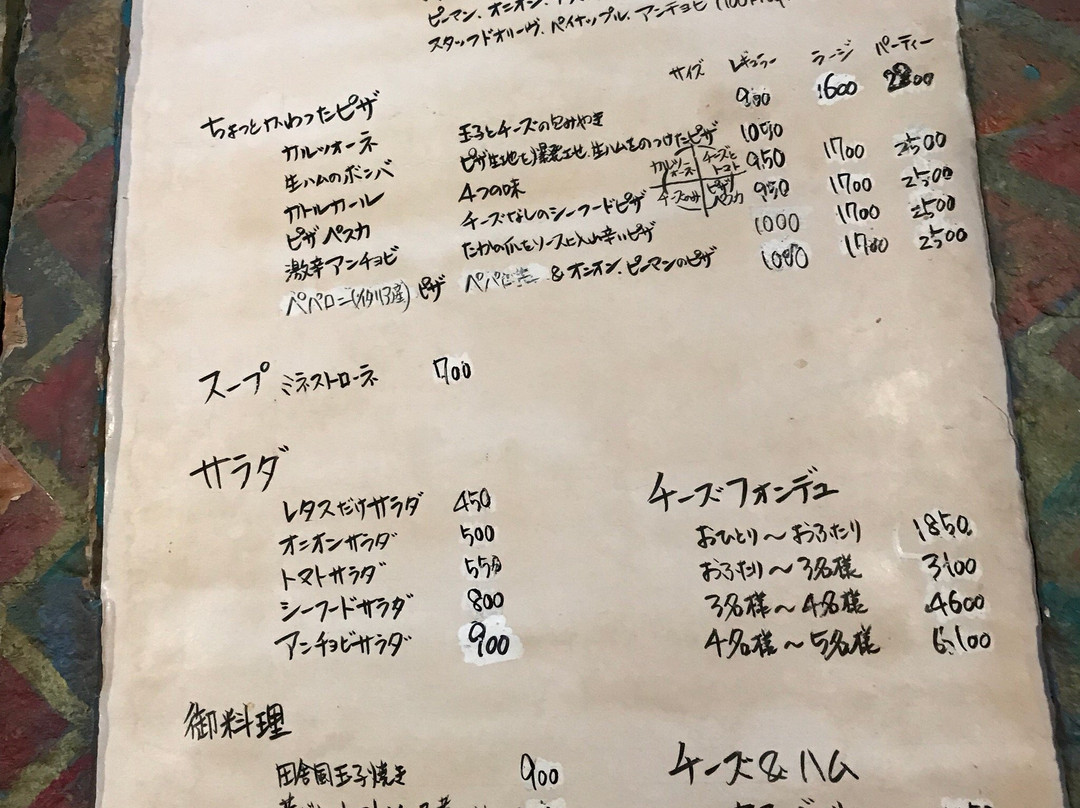 ピーマン、オニオン、
スタッフドオリーヴ、パイナップル、アンチョビ
サイズ レギュラー ラージ パーティー
ちょっとかわったピザ
カルツォーネ 玉子とチーズの包みやき 900 1600 2200
生ハムのボンバ ピザ生地を爆発させ、生ハムをのっけたピザ 1050
カトルカール 4つの味 カルツォーネ チーズとトマト チーズのみ ピザペスカ 950 1700 2500
ピザペスカ チーズなしのシーフードピザ 950 1700 2500
激辛アンチョビ たかの爪をソースに入れた辛いピザ 1000 1700 2500
ペペロニ(イタリア産)ピザ &オニオン、ピーマンのピザ 1050 1700 2500
スープ ミネストローネ 700
サラダ
レタスだけサラダ 450
オニオンサラダ 500
トマトサラダ 550
シーフードサラダ 800
アンチョビサラダ 900
チーズフォンデュ
おひとり〜おふたり 1850
おふたり〜3名様 3100
3名様〜4名様 4600
4名様〜5名様 6100
御料理
田舎風玉子焼き 900
チーズ&ハム